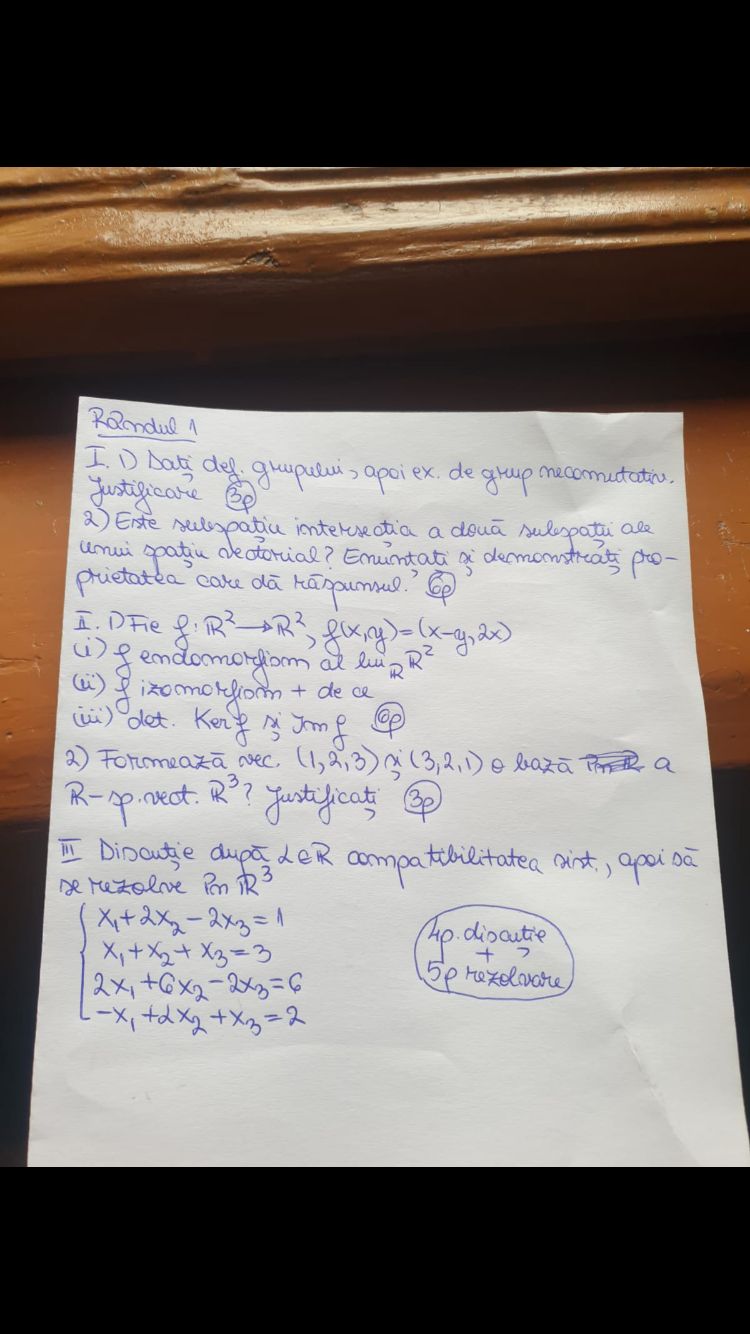 Rândul 1
I. 1) Dați def. grupului, apoi ex. de grup necomutativ.
Justificare (3p)
2) Este subspațiu intersecția a două subspații ale
unui spațiu vectorial? Enunțati și demonstrați pro-
prietatea care dă răspunsul. (6p)
II. 1) Fie f: ℝ² → ℝ², f(x,y)=(x-y, 2x)
(i) f endomorfism al lui ℝℝ²
(ii) f izomorfism + de ce
(iii) det. Ker f și Im f (6p)
2) Formează vec. (1,2,3) și (3,2,1) o bază a
ℝ-sp. vect. ℝ³? Justificați (3p)
III Discuție după α∈ℝ compatibilitatea sist., apoi să
se rezolve în ℝ³
x₁+2x₂-2x₃=1
x₁+x₂+x₃=3
2x₁+6x₂-2x₃=6
-x₁+αx₂+x₃=2
4p. discuție
+
5p rezolvare